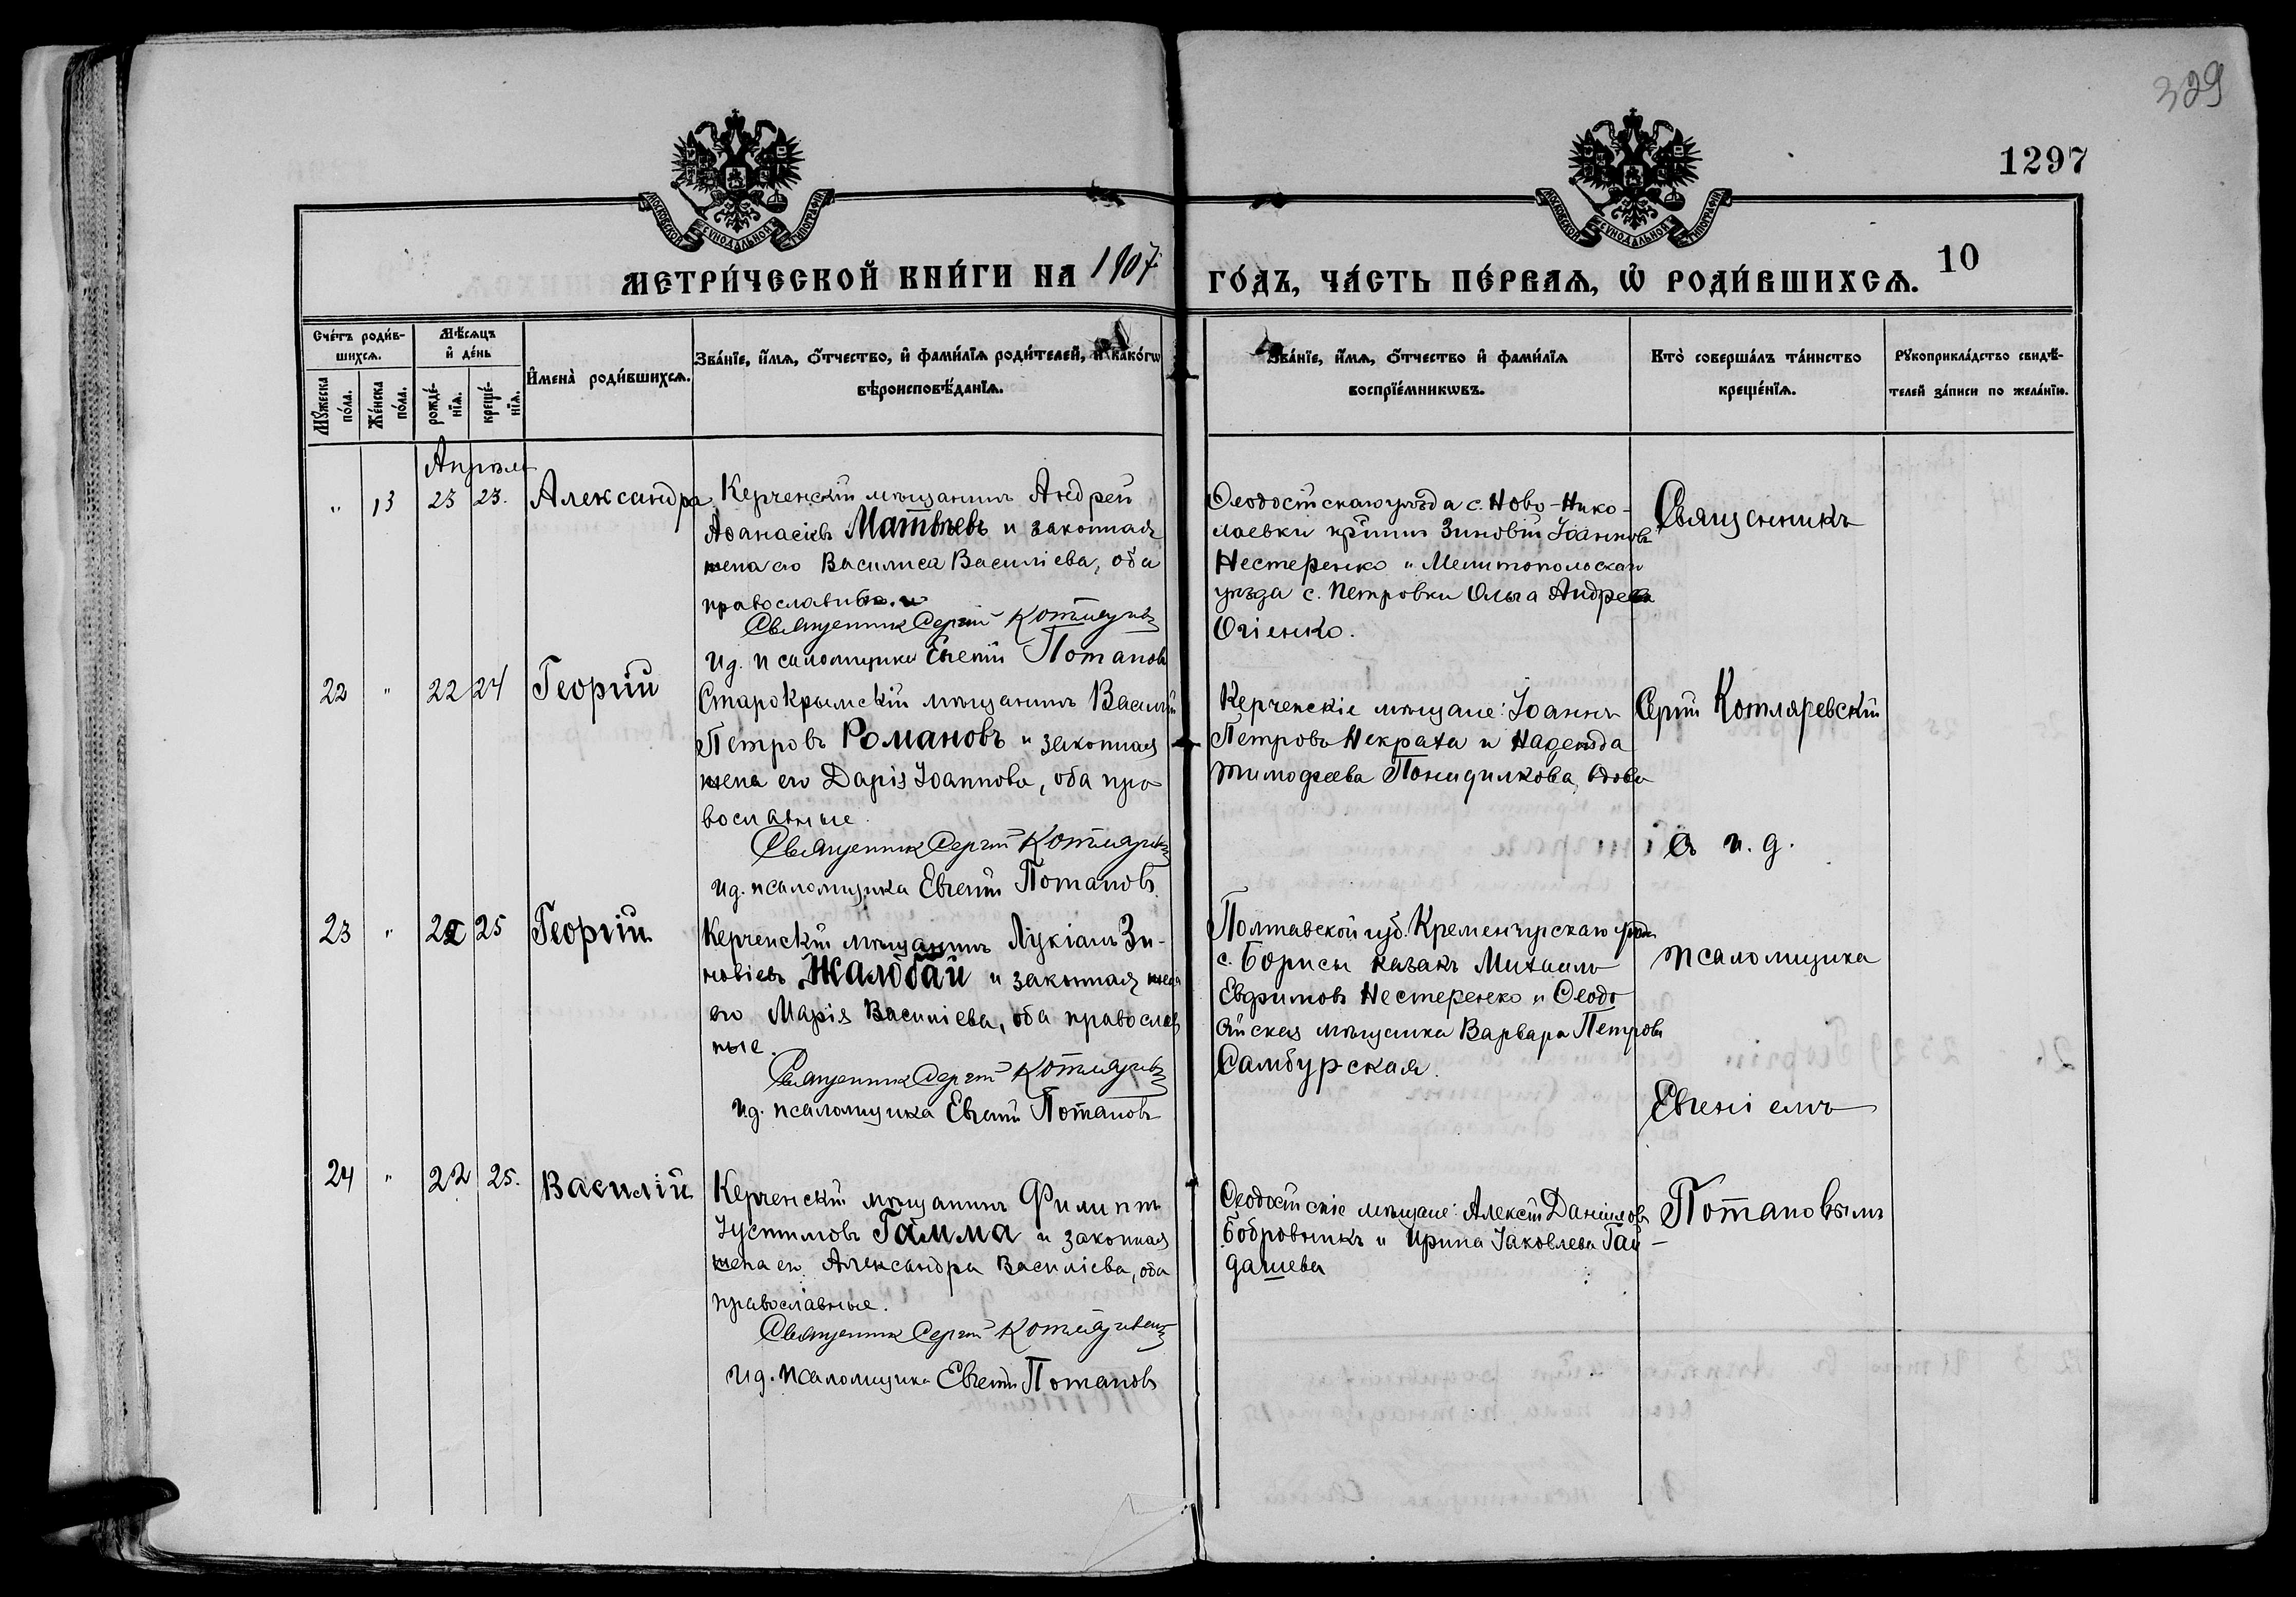 329
1297
МОСКОВСКОЙ СѴНОДАЛЬНОЙ ТИПОГРАФІИ
МОСКОВСКОЙ СѴНОДАЛЬНОЙ ТИПОГРАФІИ
МЕТРИ́ЧЕСКОЙ КНИ́ГИ НА 1907 ГО́ДЪ, ЧА́СТЬ ПЕ́РВАѦ, Ѽ РОДИ́ВШИХСѦ. 10
Сче́тъ роди́в-
шихсѧ.
Мѣ́сѧцъ
и҆ де́нь
Мꙋ́жеска
по́ла.
Же́нска
по́ла.
рожде́-
нїѧ.
креще́-
нїѧ.
И҆мена̀ роди́вшихсѧ.
Зва́нїе, и҆́мѧ, ѻ҆́тчество, и҆ фами́лїѧ роди́телей, и҆ како́гѡ
вѣроисповѣ́данїѧ.
Зва́нїе, и҆́мѧ, ѻ҆́тчество и҆ фами́лїѧ
воспрїе́мникѡвъ.
Кто̀ соверша́лъ та́инство
креще́нїѧ.
Рꙋкоприкла́дство свидѣ́-
телей за́писи по жела́нїю.
Апрѣль
" 13 23 23. Александра
Керченскій мѣщанинъ Андрей
Аѳанасіевъ Матвѣевъ и законная
жена его Василиса Василіева, оба
православные
Священникъ Сергій
и.д. псаломщика Евгеній Потаповъ
Ѳеодосійскаго уѣзда с. Ново-Нико-
лаевки кр̃нинъ Зиновій Іоанновъ
Нестеренко и Мелитопольскаго
уѣзда с. Петровки Ольга Андреева
Огіенко.
Священникъ
22 " 22 24 Георгій
Старокрымскій мѣщанинъ Василій
Петровъ Романовъ и законная
жена его Дарія Іоаннова, оба пра
вославные.
Священникъ Сергій
и.д. псаломщика Евгеній Потаповъ
Керченскіе мѣщане: Іоаннъ
Петровъ Некраха и Надежда
Тимофеева Понидилкова, вдова
Сергій Котляревскій
съ и. д.
23 " 25 Георгій
Керченскій мѣщанинъ Лукіанъ Зи-
новіевъ Жалобай и законная жена
его Марія Василіева, оба православ
ные.
Священникъ Сергій
и.д. псаломщика Евгеній Потаповъ
Полтавской губ. Кременчугскаго уѣзда
с. Борисы казакъ Михаилъ
Евфимовъ Нестеренко и Ѳеодо
сійская мѣщанка Варвара Петрова
Самбурская.
псаломщика
Евгеніемъ
24 " 22 25. Василій
Керченскій мѣщанинъ Филиппъ
Іустиновъ Гамма и законная
жена его Александра Василіева, оба
православные.
Священникъ Сергій
и.д. псаломщика Евгеній Потаповъ
Ѳеодосійскіе мѣщане: Алексій Даніиловъ
Бобровникъ и Ирина Іаковлева Гай-
дашева
Потаповымъ